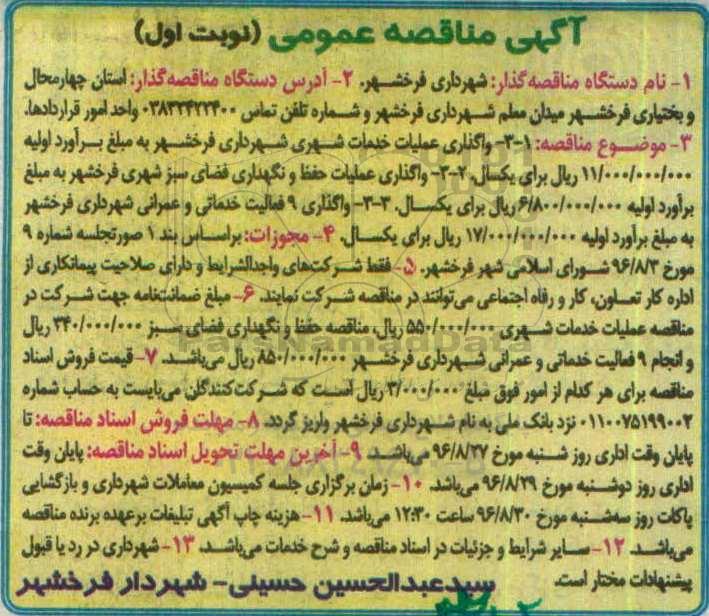 آگهی مناقصه عمومی (نوبت اول)
۱- نام دستگاه مناقصه‌گذار: شهرداری فرخشهر. ۲- آدرس دستگاه مناقصه‌گذار: استان چهارمحال
و بختیاری فرخشهر میدان معلم شهرداری فرخشهر و شماره تلفن تماس ۰۳۸۳۲۴۲۲۴۰۰ واحد امور قراردادها.
۳- موضوع مناقصه: ۱-۳- واگذاری عملیات خدمات شهری شهرداری فرخشهر به مبلغ برآورد اولیه
۱۱/۰۰۰/۰۰۰/۰۰۰ ریال برای یکسال. ۲-۳- واگذاری عملیات حفظ و نگهداری فضای سبز شهری فرخشهر به مبلغ
برآورد اولیه ۶/۸۰۰/۰۰۰/۰۰۰ ریال برای یکسال. ۳-۳- واگذاری ۹ فعالیت خدماتی و عمرانی شهرداری فرخشهر
به مبلغ برآورد اولیه ۱۷/۰۰۰/۰۰۰/۰۰۰ ریال برای یکسال. ۴- مجوزات: براساس بند ۱ صورتجلسه شماره ۹
مورخ ۹۶/۸/۳ شورای اسلامی شهر فرخشهر. ۵- فقط شرکت‌های واجدالشرایط و دارای صلاحیت پیمانکاری از
اداره کار تعاون، کار و رفاه اجتماعی می‌توانند در مناقصه شرکت نمایند. ۶- مبلغ ضمانتنامه جهت شرکت در
مناقصه عملیات خدمات شهری ۵۵۰/۰۰۰/۰۰۰ ریال، مناقصه حفظ و نگهداری فضای سبز ۳۴۰/۰۰۰/۰۰۰ ریال
و انجام ۹ فعالیت خدماتی و عمرانی شهرداری فرخشهر ۸۵۰/۰۰۰/۰۰۰ ریال می‌باشد. ۷- قیمت فروش اسناد
مناقصه برای هر کدام از امور فوق مبلغ ۳/۰۰۰/۰۰۰ ریال است که شرکت‌کنندگان می‌بایست به حساب شماره
۰۱۱۰۰۷۵۱۹۹۰۰۲ نزد بانک ملی به نام شهرداری فرخشهر واریز گردد. ۸- مهلت فروش اسناد مناقصه: تا
پایان وقت اداری روز شنبه مورخ ۹۶/۸/۲۷ می‌باشد. ۹- آخرین مهلت تحویل اسناد مناقصه: پایان وقت
اداری روز دوشنبه مورخ ۹۶/۸/۲۹ می‌باشد. ۱۰- زمان برگزاری جلسه کمیسیون معاملات شهرداری و بازگشایی
پاکات روز سه‌شنبه مورخ ۹۶/۸/۳۰ ساعت ۱۲:۳۰ می‌باشد. ۱۱- هزینه چاپ آگهی تبلیغات برعهده برنده مناقصه
می‌باشد. ۱۲- سایر شرایط و جزئیات در اسناد مناقصه و شرح خدمات می‌باشد. ۱۳- شهرداری در رد یا قبول
پیشنهادات مختار است.
سیدعبدالحسین حسینی- شهردار فرخشهر
ParsNamadData